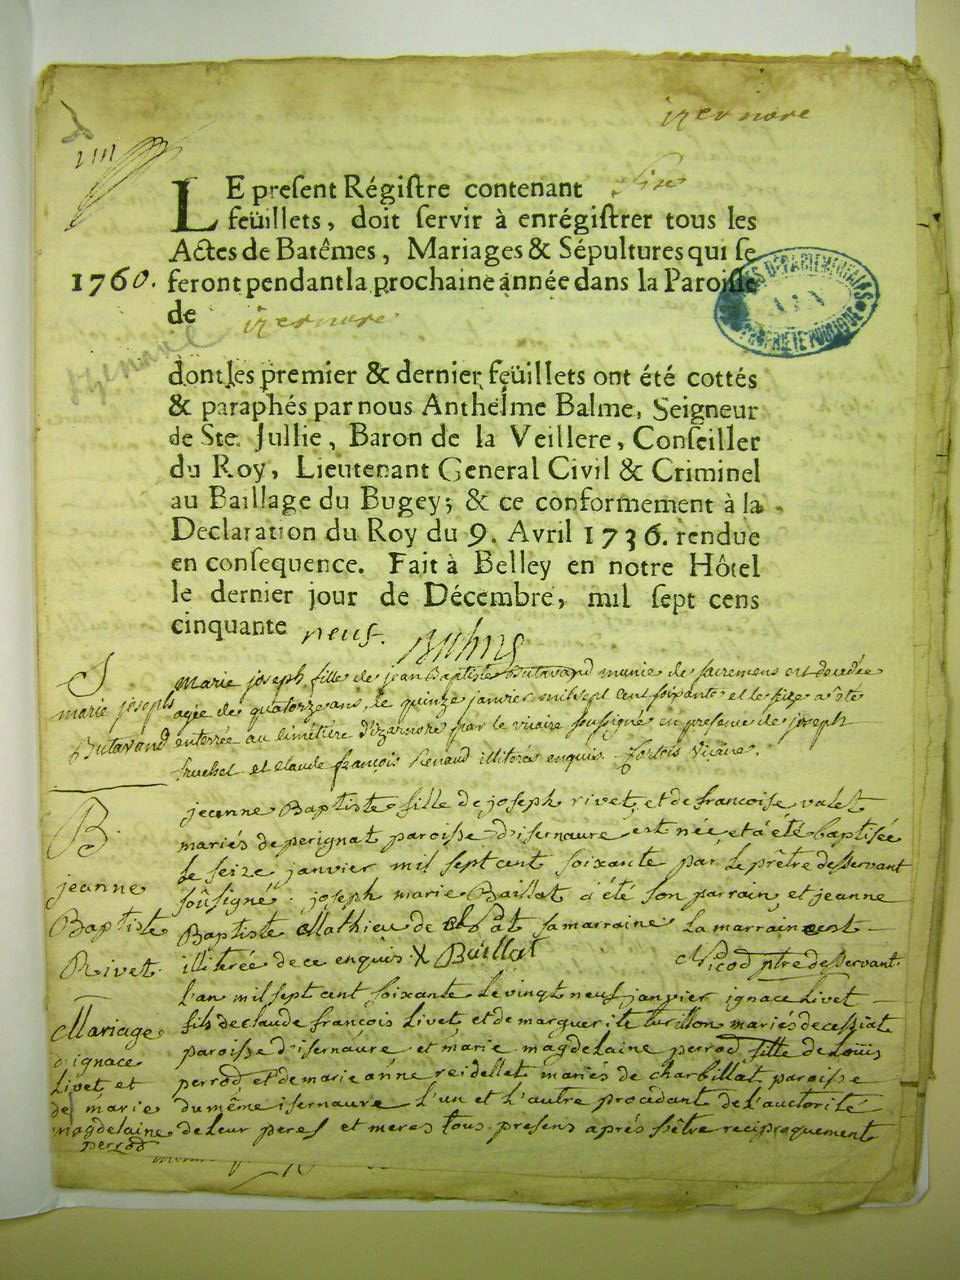 izernore
LE preſent Régiſtre contenant Six
feüillets, doit ſervir à enrégiſtrer tous les
Actes de Batêmes, Mariages & Sépultures qui ſe
1760. feront pendant la prochaine année dans la Paroiſſe
de izernore
dont les premier & dernier feüillets ont été cottés
& paraphés par nous Anthelme Balme, Seigneur
de Ste. Jullie, Baron de la Veillere, Conſeiller
du Roy, Lieutenant General Civil & Criminel
au Baillage du Bugey; & ce conformement à la
Declaration du Roy du 9. Avril 1736. rendue
en conſequence. Fait à Belley en notre Hôtel
le dernier jour de Décembre, mil ſept cens
cinquante neuf.
S
marie joseph
Butavand
Marie joseph fille de jean Baptiste Butavand munie de sacremens est décédée
agée de quatorze ans, le quinze janvier mil sept cent soixante et le seize a été
enterrée au cimétière d'izarnore par le vicaire soussigné en presence de joseph
et claude françois Renaud illiterés enquis. Vicaire.
B.
jeanne
Baptiste
Rivet.
jeanne Baptiste fille de joseph rivet et de francoise valet
mariés de perignat paroisse d'isernaure est née et a été baptisée
le seize janvier mil sept cent soixante par le prêtre desservant
soûsigné. joseph marie Baillat a été son parrain, et jeanne
Baptiste Mathieu de sa marraine la marraine est
illiterée de ce enquis. X Baillat Nicod ptre desservant.
Mariage
d'ignace
Livet et
de marie
magdelaine
perrod
l'an mil sept cent soixante le vingt neuf janvier ignace Livet
fils de claude françois Livet et de marguerite turillon mariés de cessiat
paroisse d'isernaure et marie magdelaine perrod fille de Loüis
perrod et de marie anne reidellet mariés de charbillat paroisse
du même isernaure l'un et l'autre procédant de l'auctorité
de leur peres et meres tous presens après s'être reciproquement